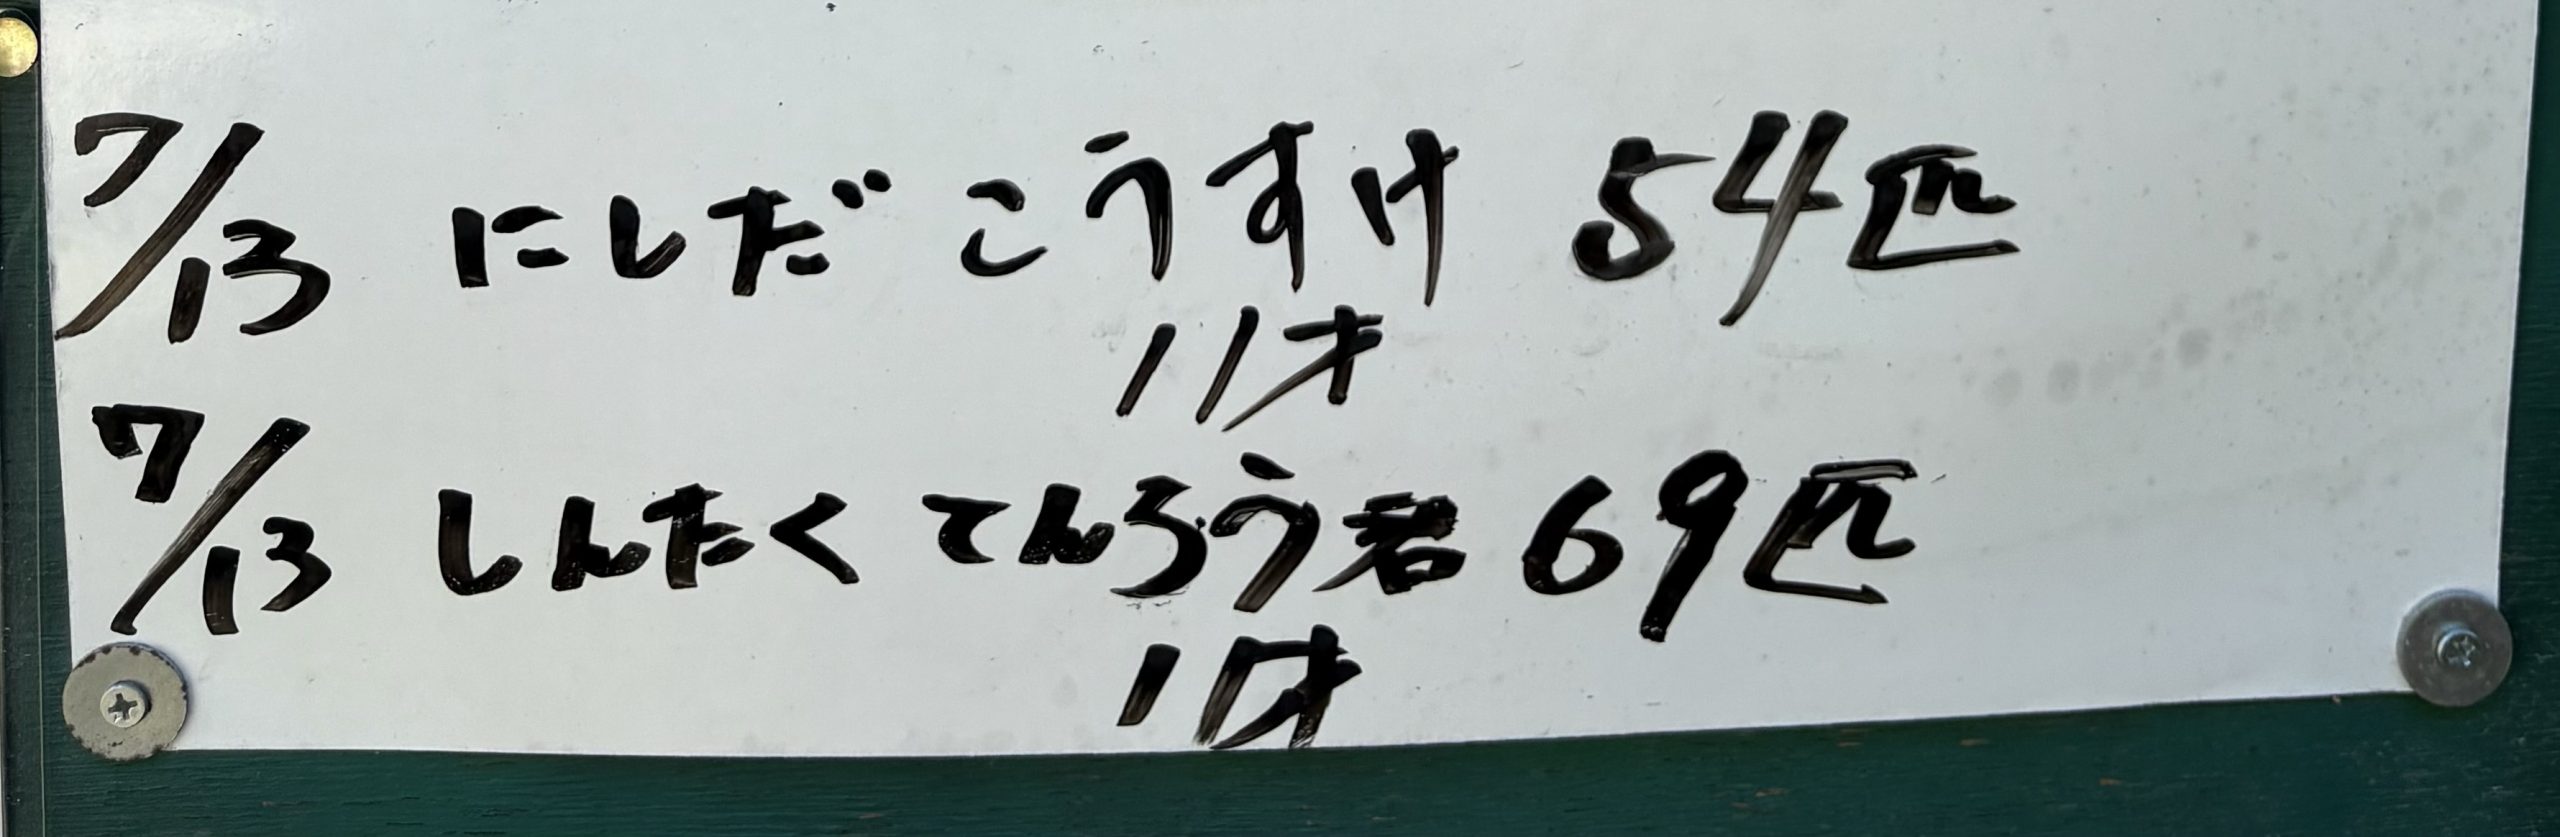 7/13 にしだ こうすけ 54匹
11才
7/13 しんたく てんろう君 69匹